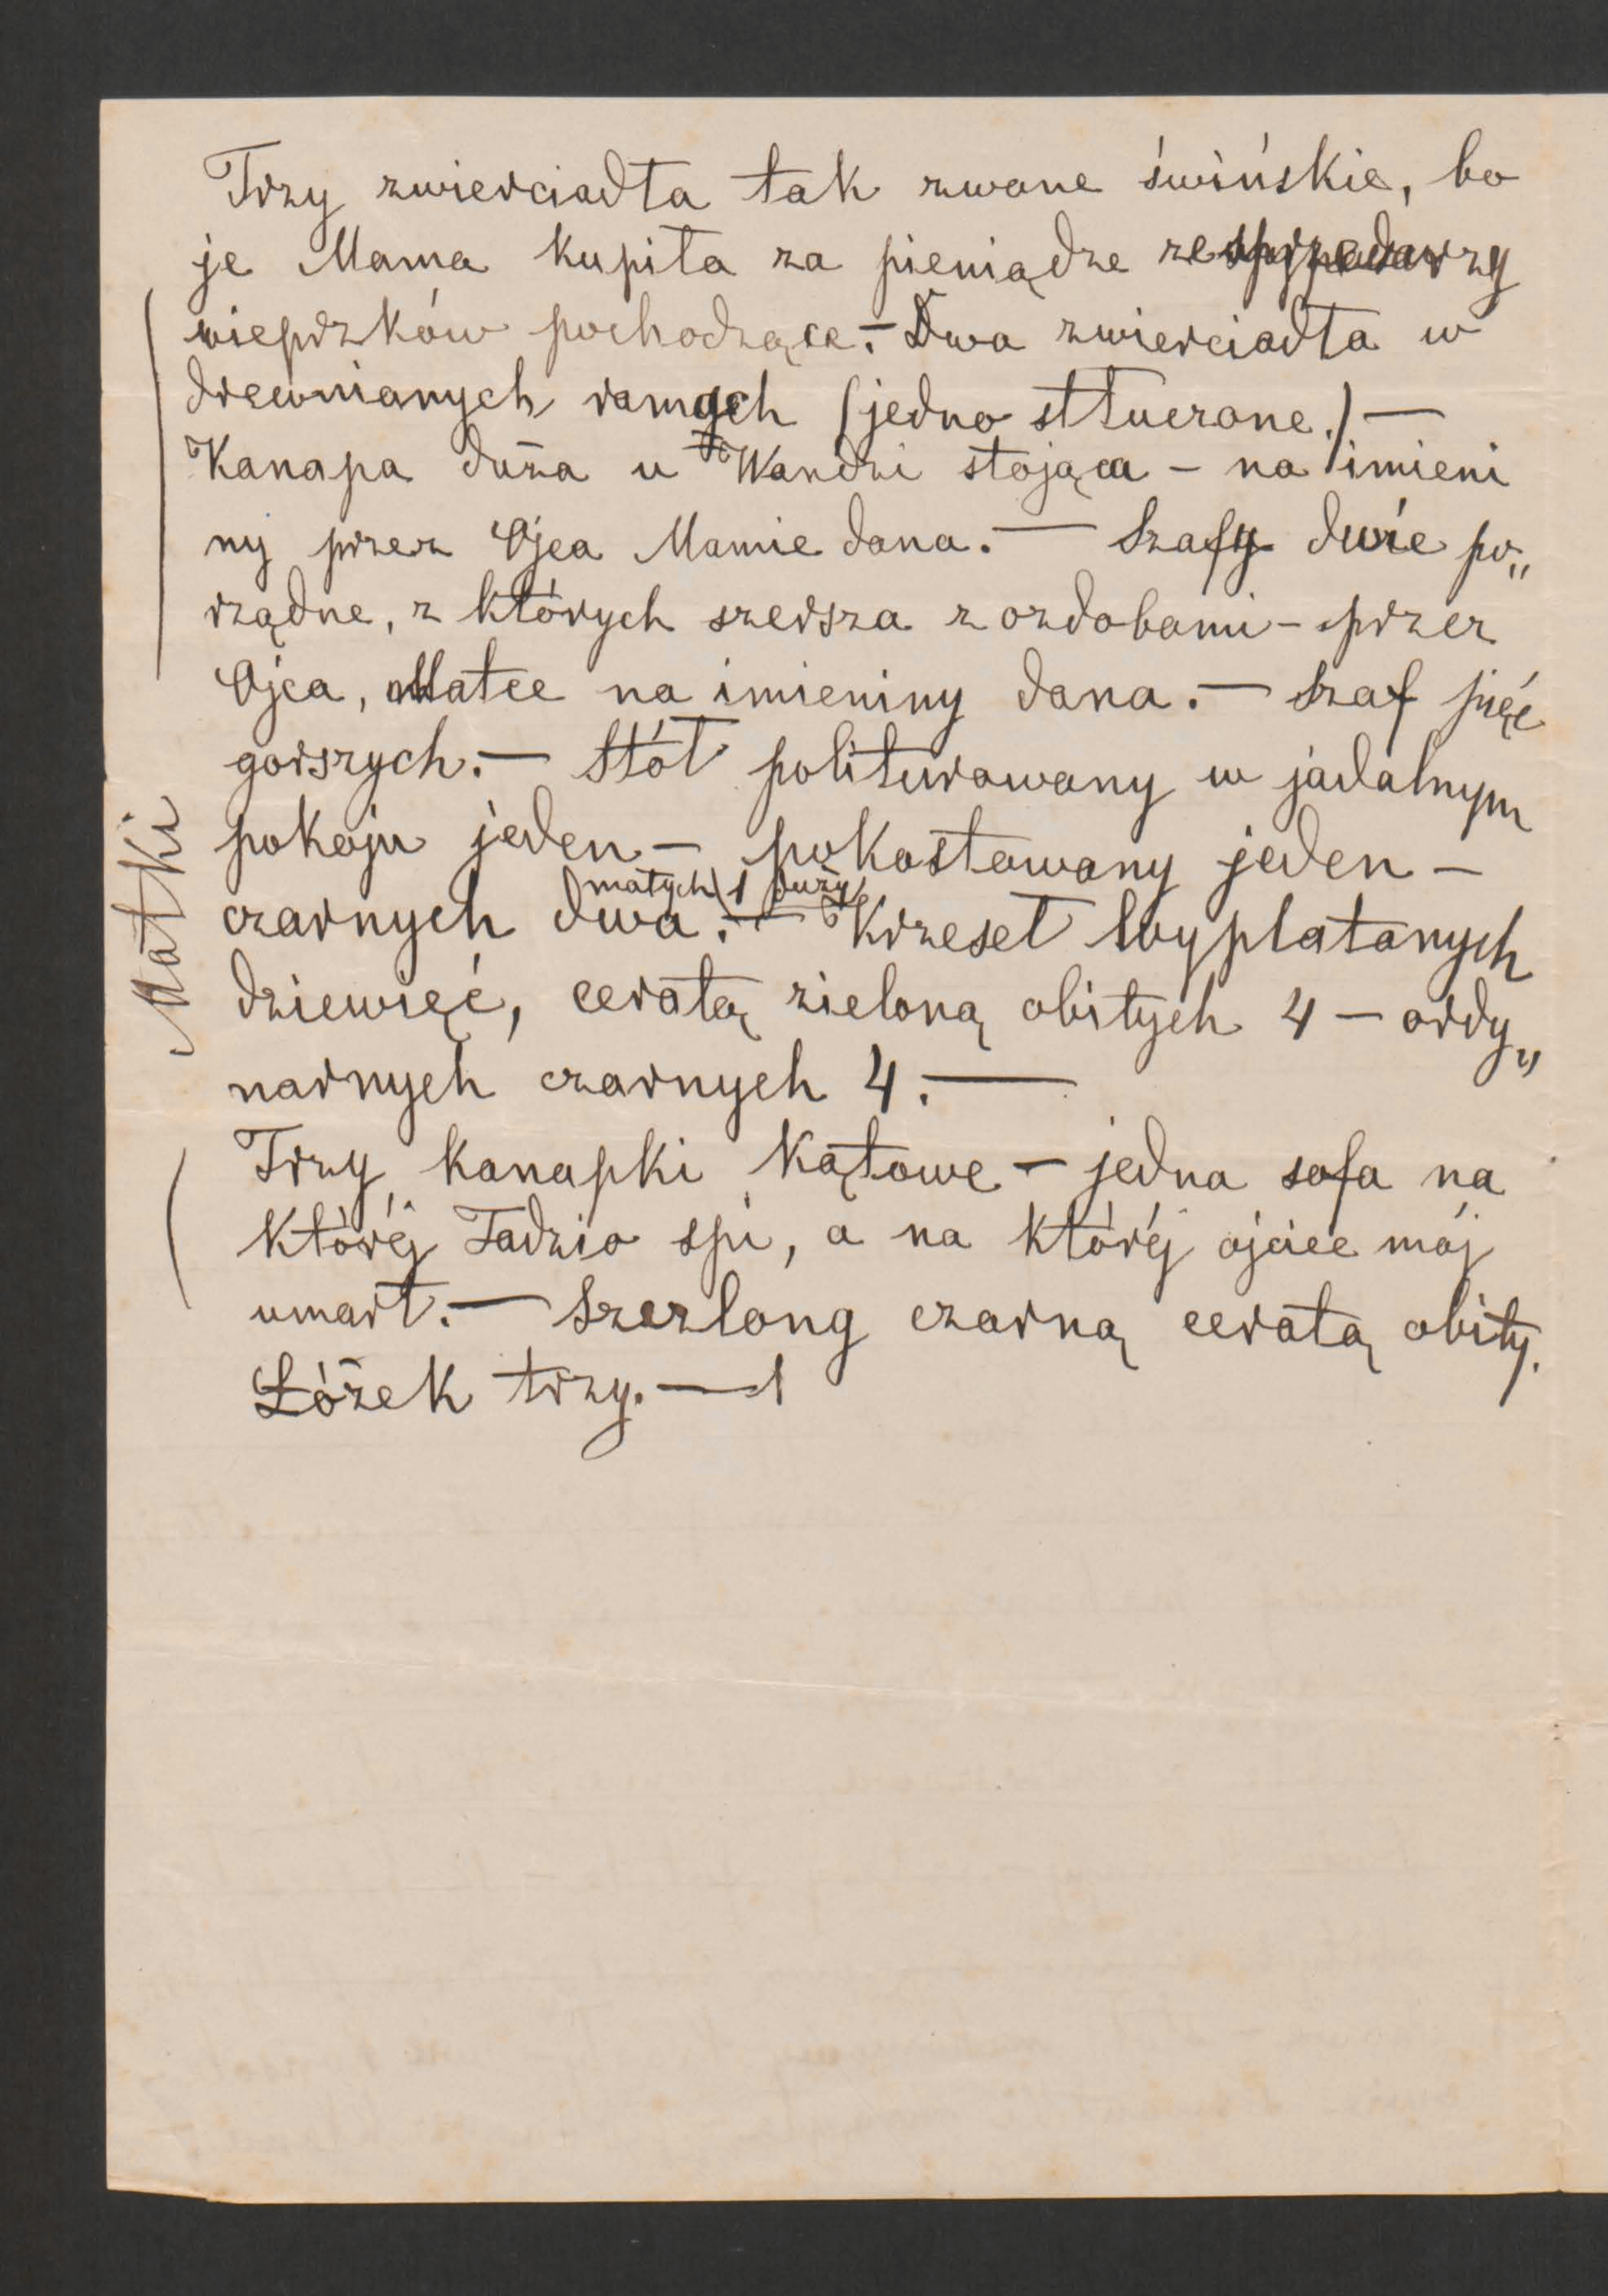 Trzy zwierciadła tak zwane świńskie, bo
je Mama kupiła za pieniądze ze sprzedarzy
wieprzków pochodzące.— Dwa zwierciadła w
drewnianych ramach (jedno stłuczone.) —
Kanapa duża u Wandzi stojąca — na imieni
ny przez Ojca Mamie dana. — Szafy dwie po„
rządne, z których szersza z ozdobami — przez
Ojca, Matce na imieniny dana. — Szaf pięć
gorszych. — Stół politurowany w jadalnym
pokoju jeden — pokostowany jeden —
małych 1 duży
czarnych dwa. — Krzeseł wyplatanych
dziewięć, ceratą zieloną obitych 4 — ordy„
narnych czarnych 4. —
Trzy kanapki kątowe — jedna sofa na
której Tadzio spi, a na której ojciec mój
umarł. — Szezlong czarną ceratą obity.
Łóżek trzy. —
Matki